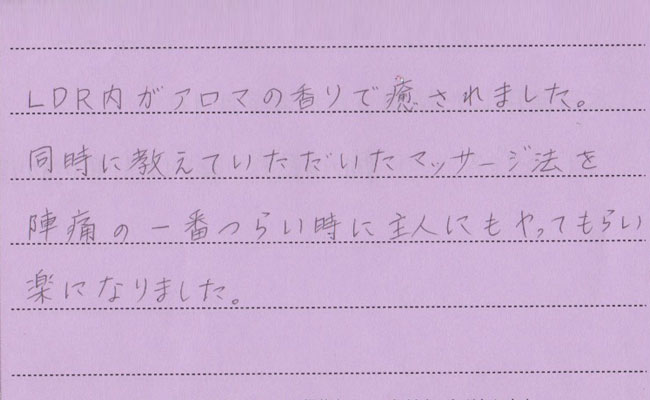 LDR内がアロマの香りで癒されました。
同時に教えていただいたマッサージ法を
陣痛の一番つらい時に主人にもやってもらい
楽になりました。